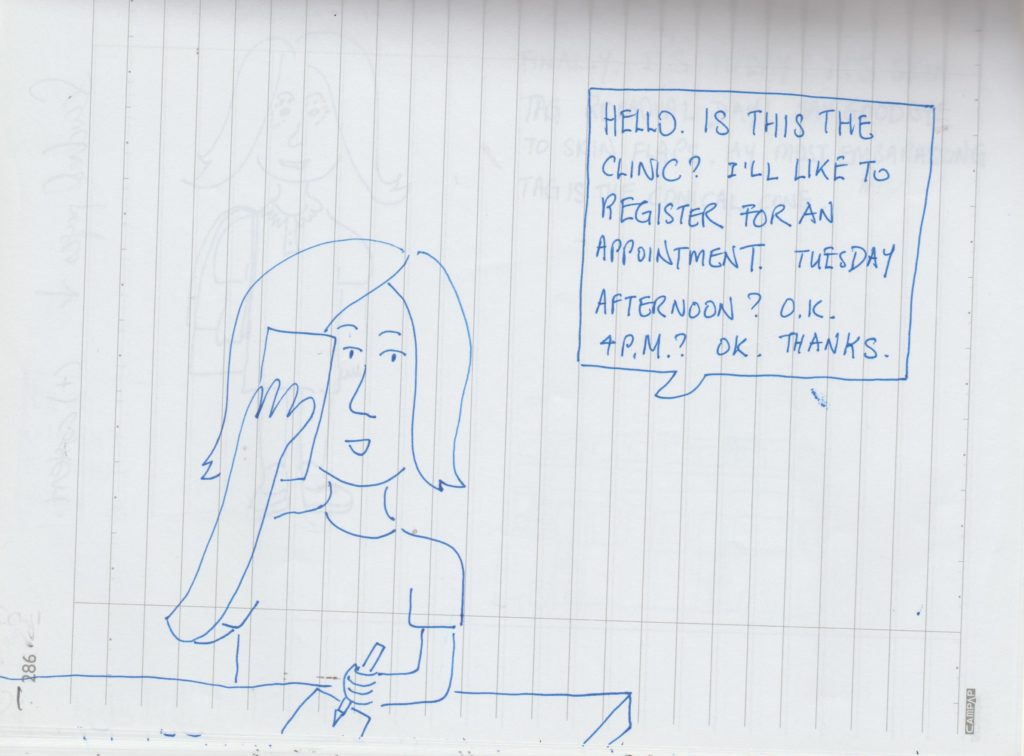 HELLO. IS THIS THE
CLINIC? I'LL LIKE TO
REGISTER FOR AN
APPOINTMENT. TUESDAY
AFTERNOON? O.K.
4 P.M.? OK. THANKS.
286
CAMPAP